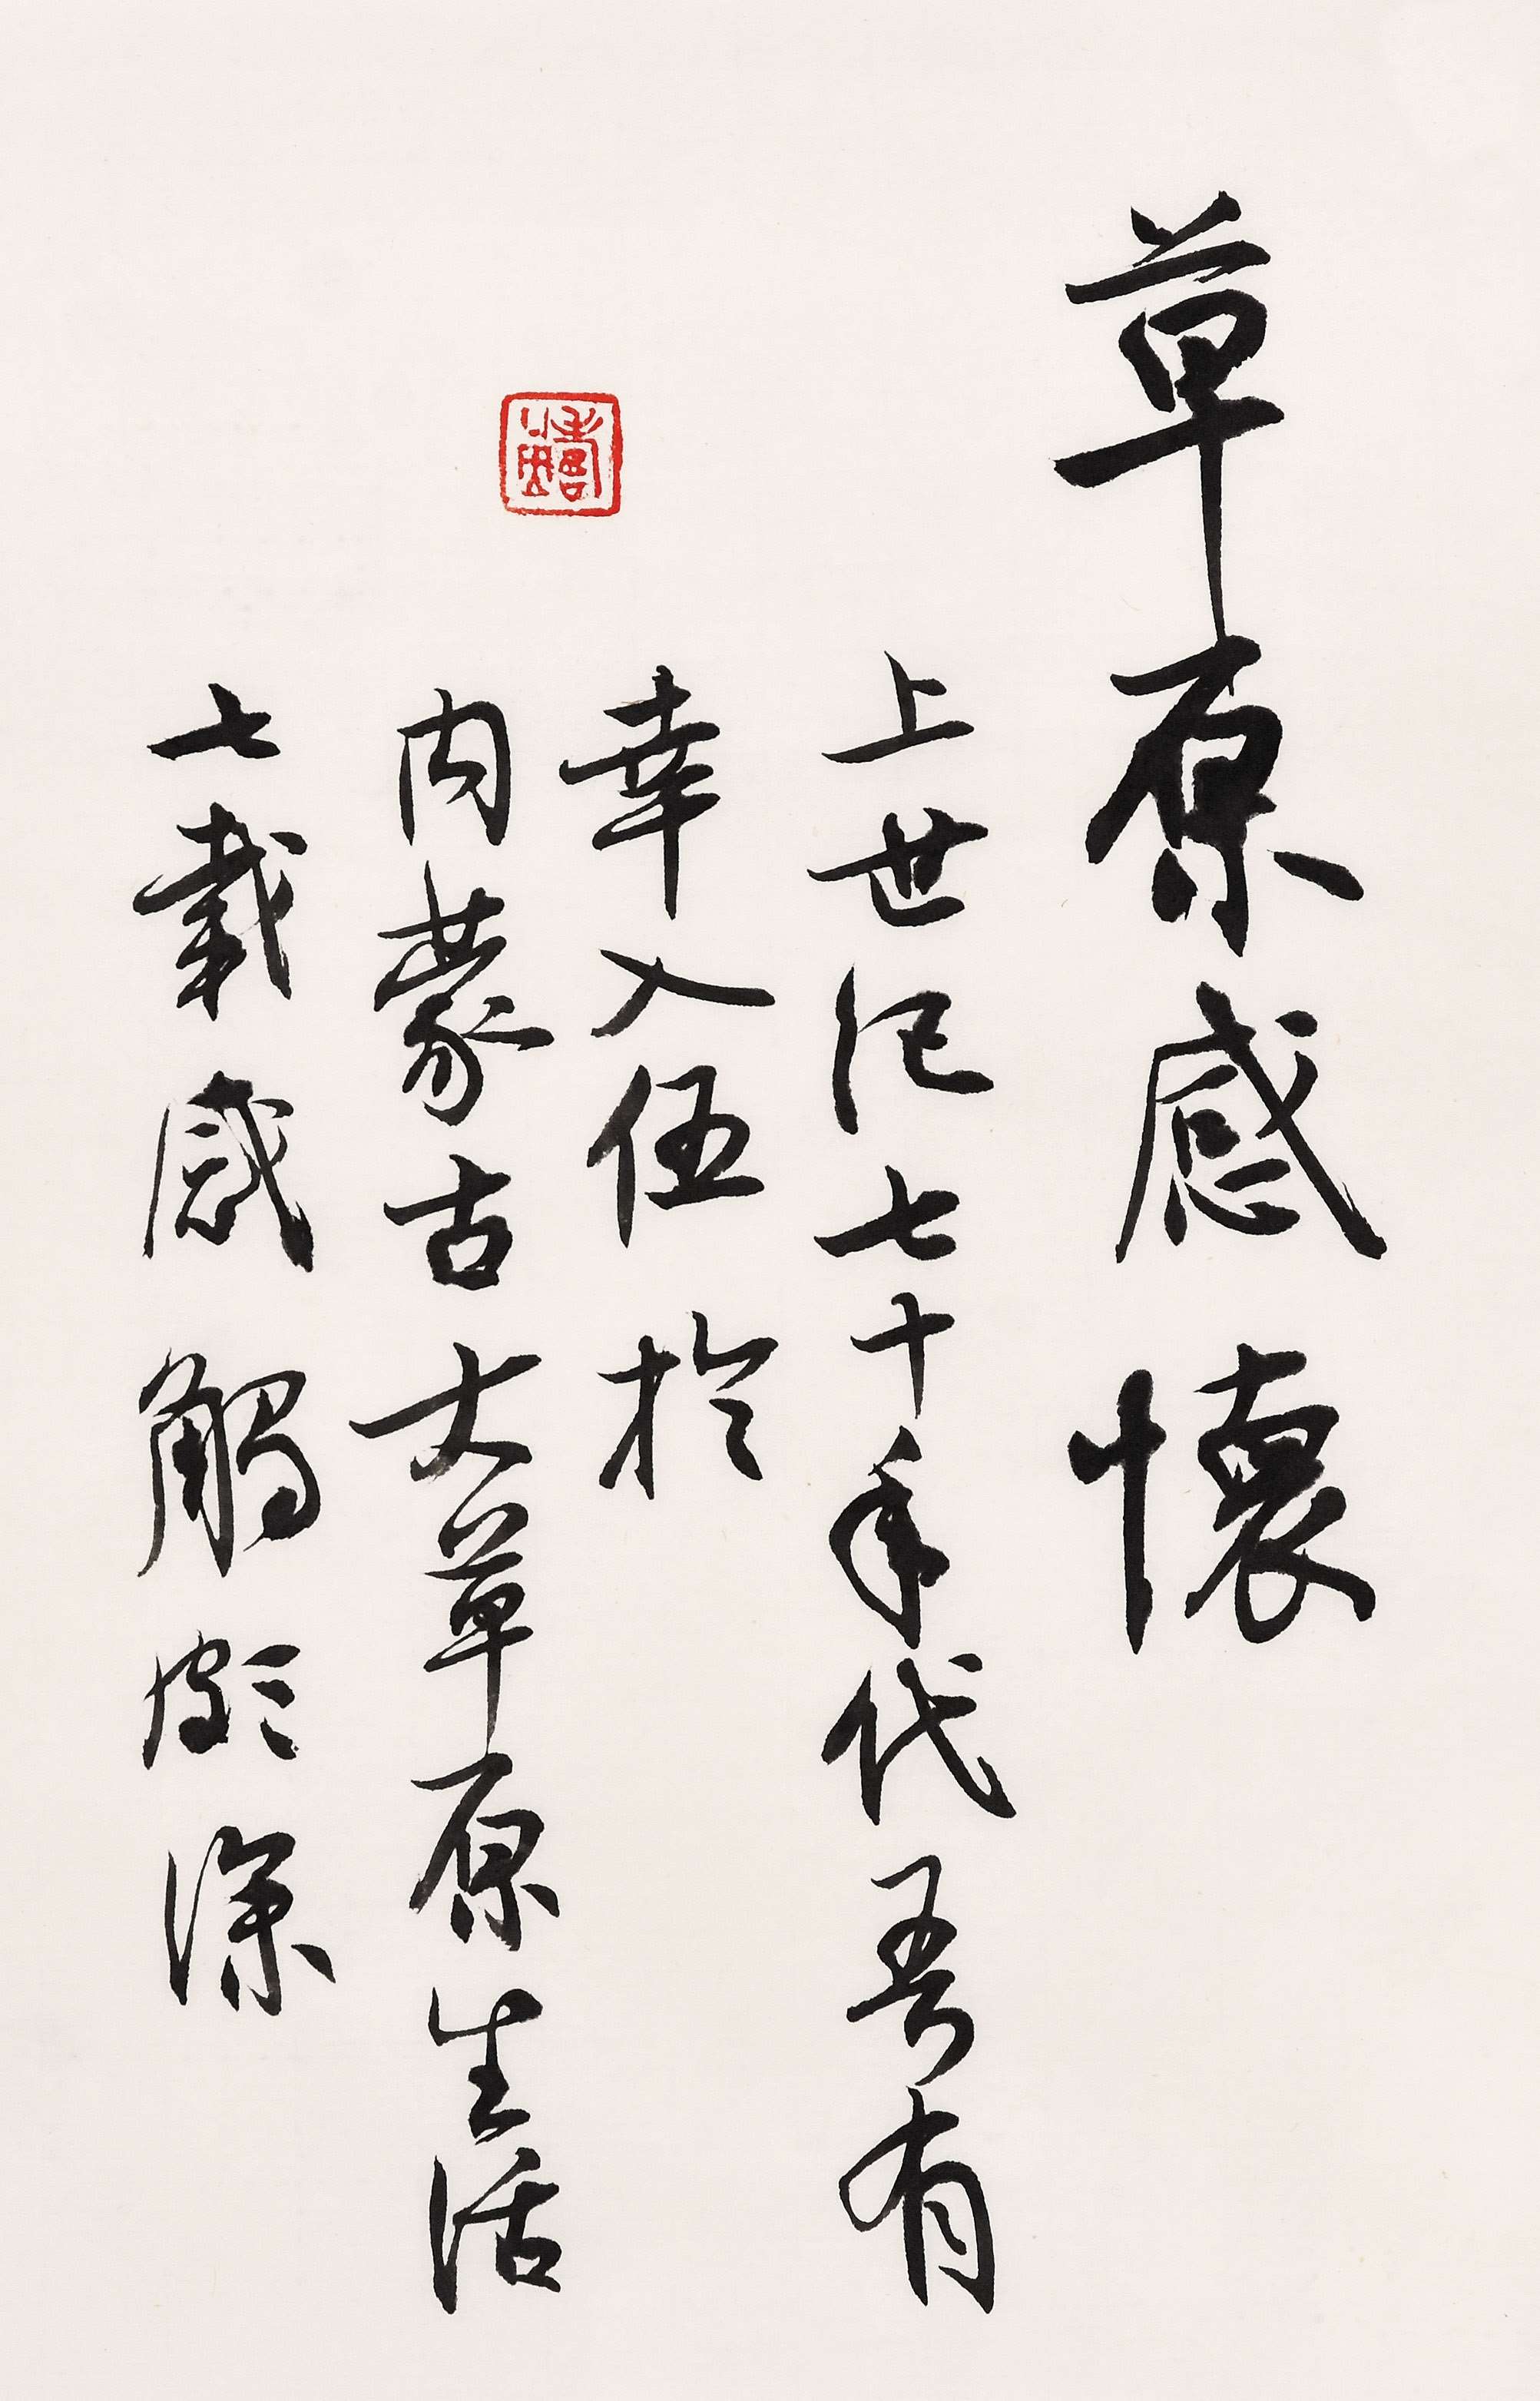 草原感懷
上世紀七十年代吾有
幸入伍於
內蒙古大草原生活
七載感觸頗深